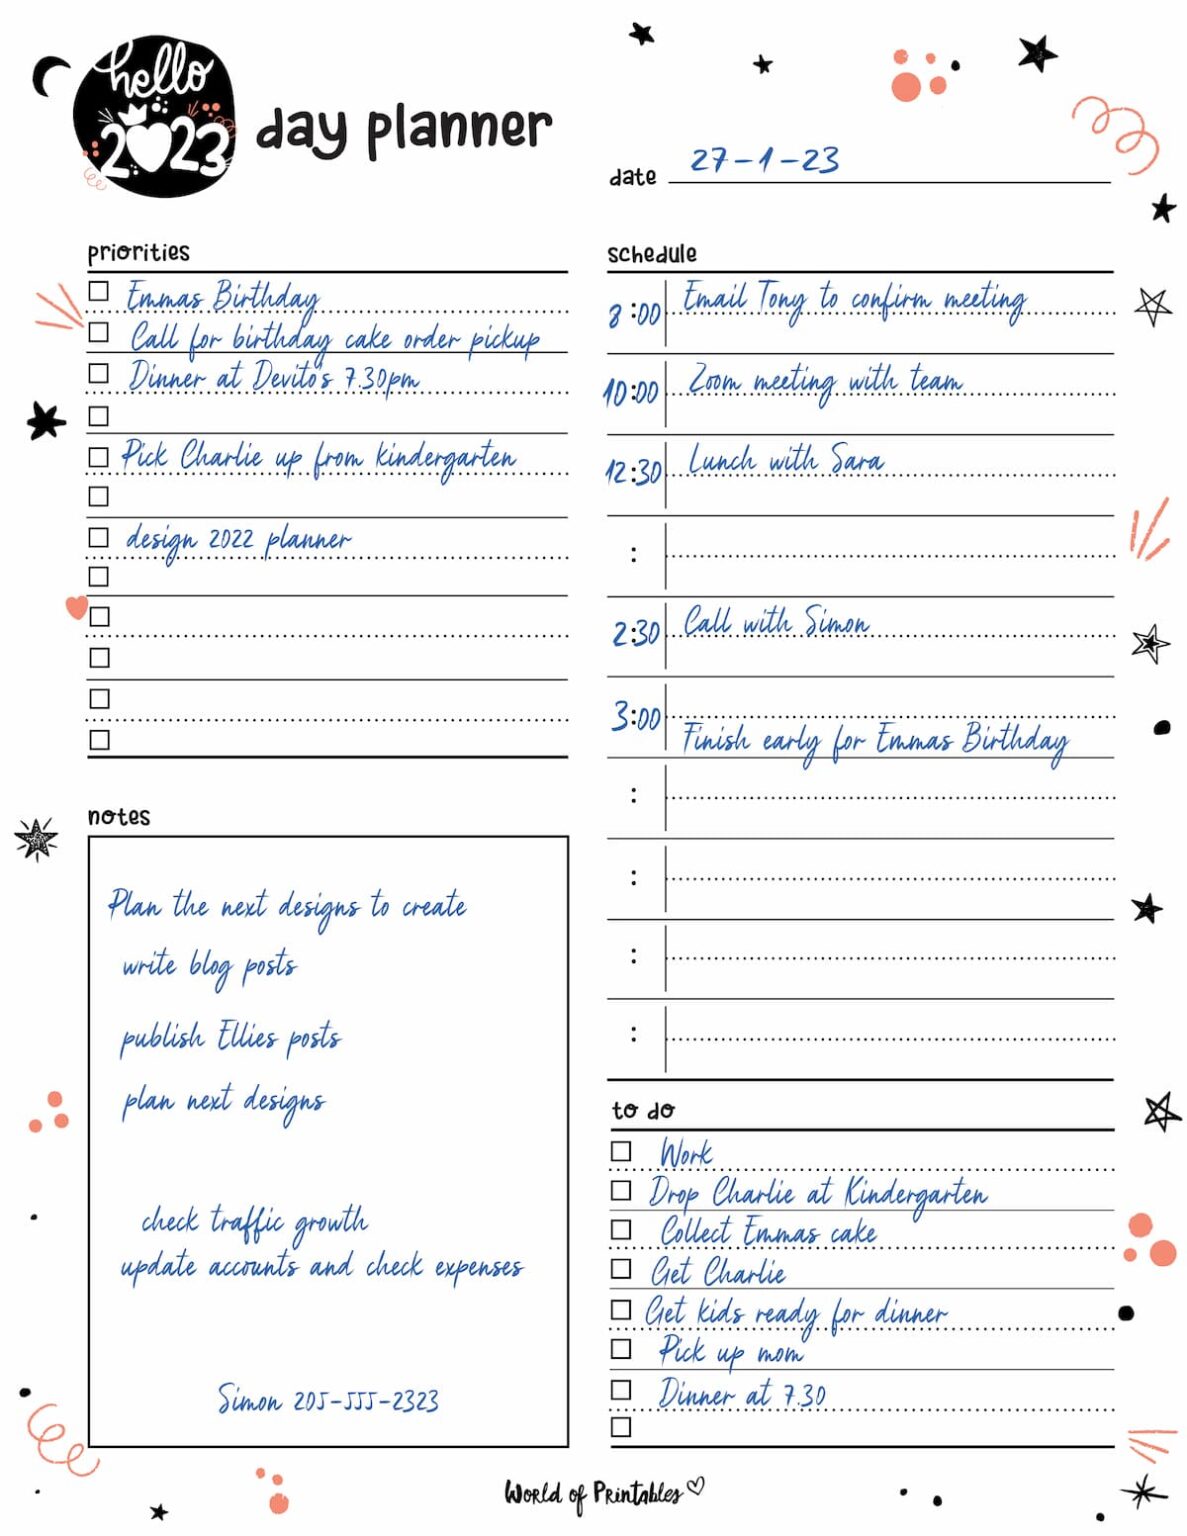 hello
2023
day planner
date 27-1-23
priorities
Emmas Birthday
Call for birthday cake order pickup
Dinner at Devito's 7.30pm
Pick Charlie up from kindergarten
design 2022 planner
notes
Plan the next designs to create
write blog posts
publish Ellies posts
plan next designs
check traffic growth
update accounts and check expenses
Simon 205-555-2323
schedule
8:00 Email Tony to confirm meeting
10:00 Zoom meeting with team
12:30 Lunch with Sara
:
2:30 Call with Simon
3:00 Finish early for Emmas Birthday
:
:
:
:
to do
Work
Drop Charlie at Kindergarten
Collect Emmas cake
Get Charlie
Get kids ready for dinner
Pick up mom
Dinner at 7.30
World of Printables